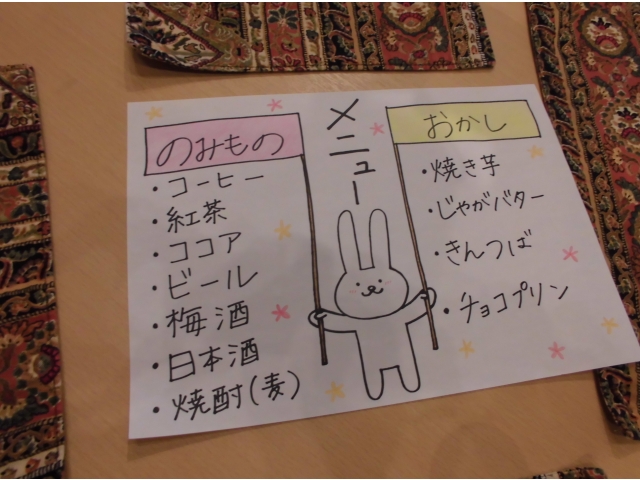 メニュー
のみもの
・コーヒー
・紅茶
・ココア
・ビール
・梅酒
・日本酒
・焼酎(麦)
おかし
・焼き芋
・じゃがバター
・きんつば
・チョコプリン